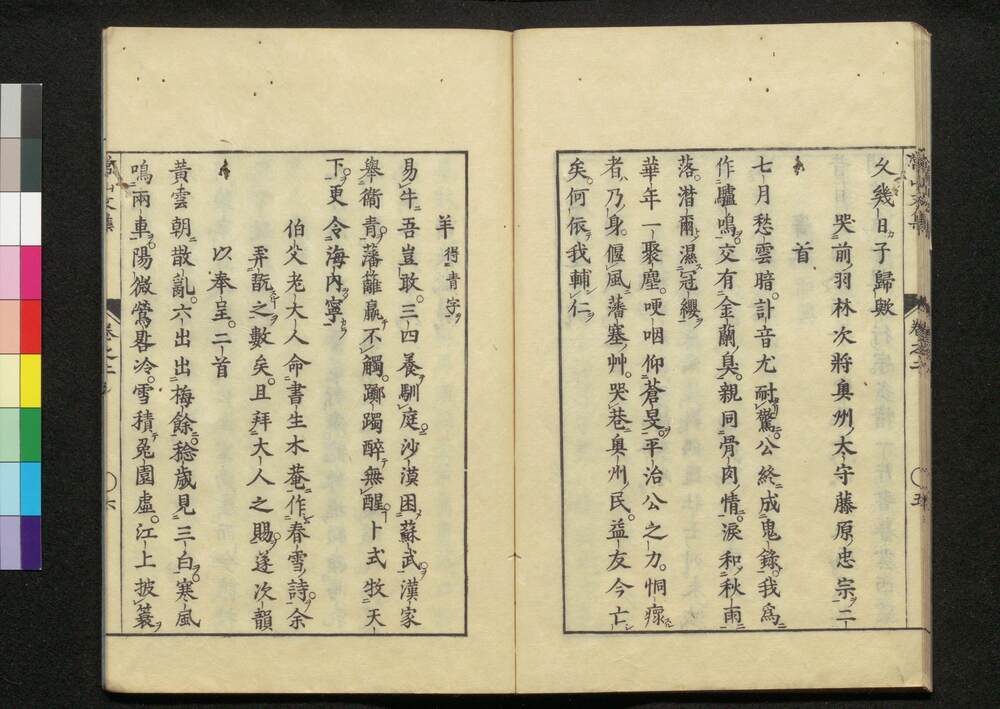 久幾日子歸歟
哭前羽林次將奥州太守藤原忠宗二
首
七月愁雲暗訃音尤耐驚公終成鬼錄我爲
作驢鳴交有金蘭臭親同骨肉情淚和秋雨
落潛爾濕冠纓
華年一聚塵哽咽仰蒼旻平治公之力恫瘝
者乃身偃風藩塞艸哭巷奥州民益友今亡
矣何依我輔仁
卷之二
五
羊 得青字
易牛吾豈敢三四養馴庭沙漠困蘇武漢家
擧衞青藩籬羸不觸躑躅醉無醒卜式牧天
下更令海内寧
伯父老大人命書生木菴作春雪詩余
弄翫之數矣且拜大人之賜遂次韻
以奉呈二首
黃雲朝散亂六出出梅餘稔歲見三白寒風
鳴兩車陽微鶯咎冷雪積兔園虛江上披蓑
卷之二
六